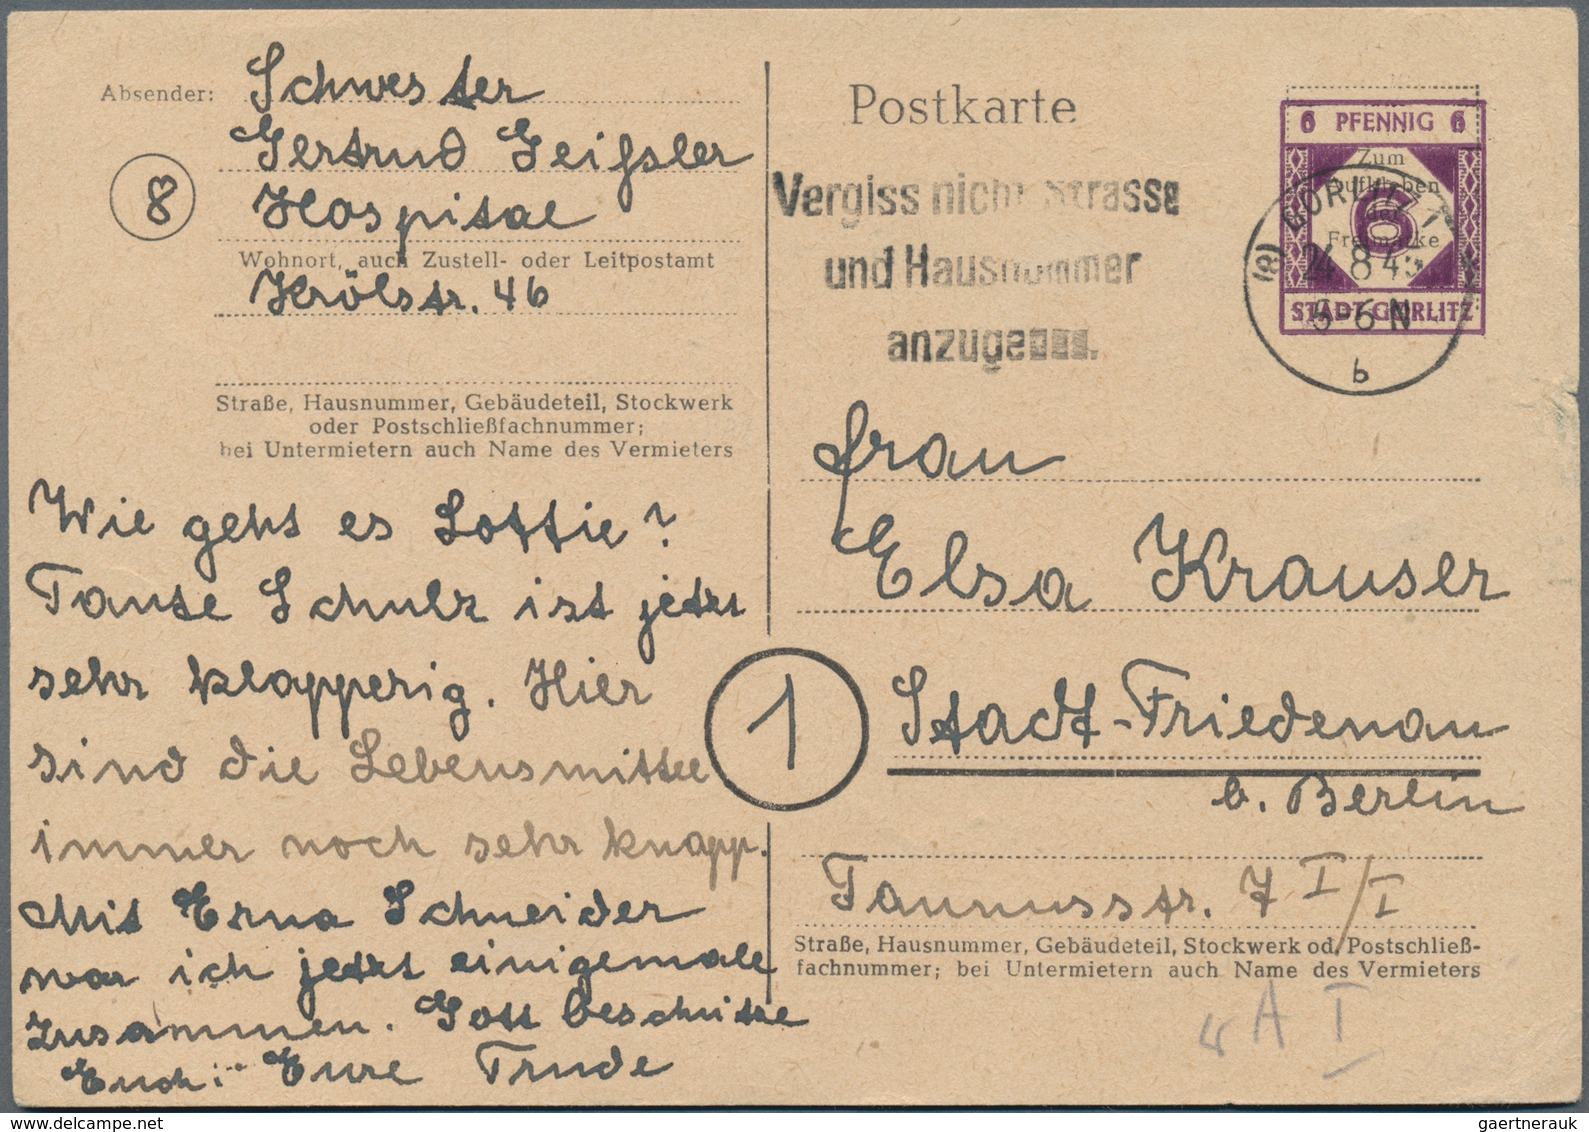 Absender: Schwester
Gertrud Geißler
(8) Hospital
Wohnort, auch Zustell- oder Leitpostamt
Krölstr. 46
Straße, Hausnummer, Gebäudeteil, Stockwerk
oder Postschließfachnummer;
bei Untermietern auch Name des Vermieters
Wie geht es Lottie?
Tante Schulz ist jetzt
sehr klapperig. Hier
sind die Lebensmittel
immer noch sehr knapp.
Mit Erna Schneider
war ich jetzt einigemale
zusammen. Gott beschütze
Euch. Eure Trude
Postkarte
6 PFENNIG 6
Zum
Aufkleben
der
Freimarke
6
STADT GÖRLITZ
(8) GÖRLITZ 1
24.8.45
5-6 N
b
Vergiss nicht Strasse
und Hausnummer
anzugeben.
Frau
Elsa Krauser
1 Stadt-Friedenau
b. Berlin
Taunusstr. 7 I/I
Straße, Hausnummer, Gebäudeteil, Stockwerk od. Postschließ-
fachnummer; bei Untermietern auch Name des Vermieters
A I
gaertnerauk